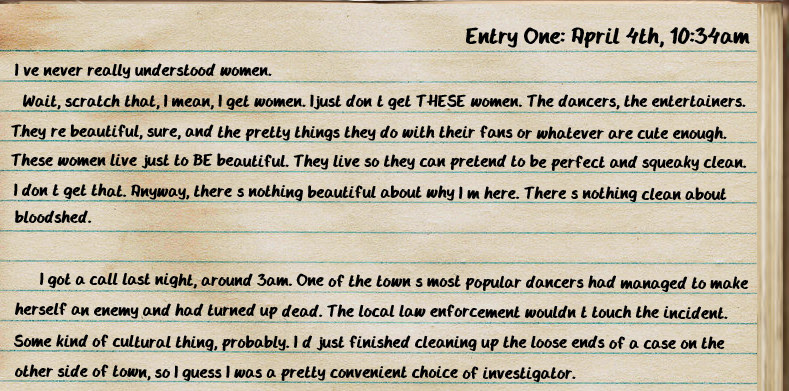 Entry One: April 4th, 10:34am
I ve never really understood women.
Wait, scratch that, I mean, I get women. I just don t get THESE women. The dancers, the entertainers.
They re beautiful, sure, and the pretty things they do with their fans or whatever are cute enough.
These women live just to BE beautiful. They live so they can pretend to be perfect and squeaky clean.
I don t get that. Anyway, there s nothing beautiful about why I m here. There s nothing clean about
bloodshed.
I got a call last night, around 3am. One of the town s most popular dancers had managed to make
herself an enemy and had turned up dead. The local law enforcement wouldn t touch the incident.
Some kind of cultural thing, probably. I d just finished cleaning up the loose ends of a case on the
other side of town, so I guess I was a pretty convenient choice of investigator.